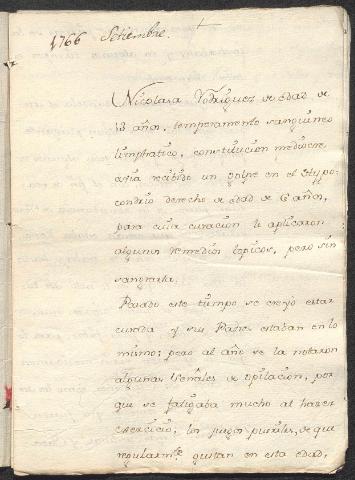 1766 Setiembre.
Nicolasa Rodriguez de edad de
13 años, temperamento sanguineo
limphatico, constitucion mediocre
avia recibido un golpe en el Hypo-
condrio derecho de edad de 6 años,
para cuia curacion le aplicaron
algunos remedios topicos, pero sin
sangrarla.
Pasado este tiempo se creyò estar
curada y sus Padres estaban en lo
mismo; pero al año se la notaron
algunas señales de opilacion, por
que se fatigaba mucho al hazer
exercicio, los juegos pueriles, de que
regularmte. gustan en esta edad,